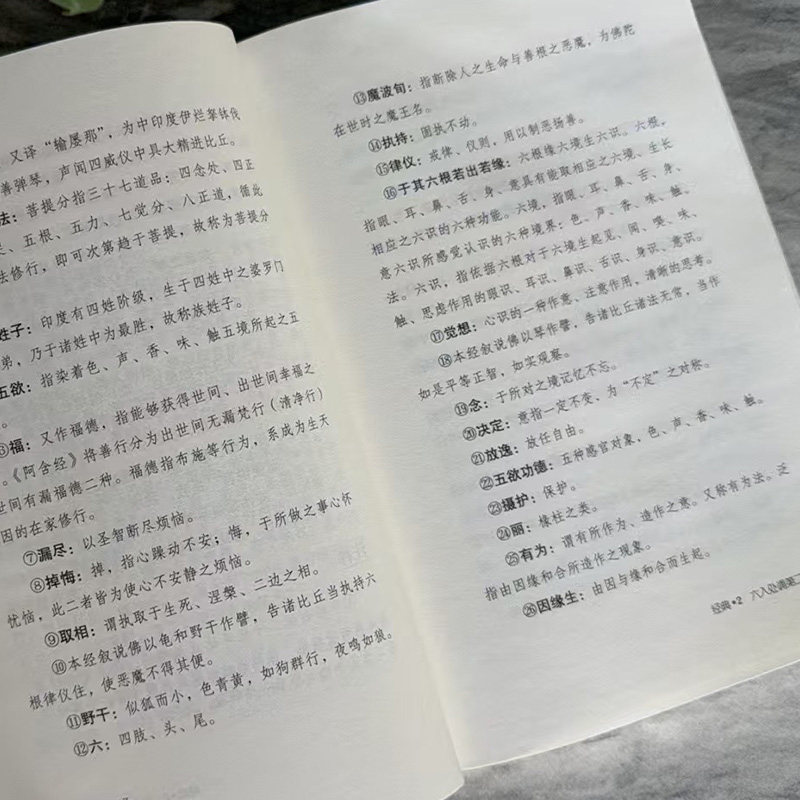 又译“输屡那”，为中印度伊烂拏钵伐
善弹琴，声闻四威仪中具大精进比丘。
法：菩提分指三十七道品：四念处、四正
五根、五力、七觉分、八正道，循此
法修行，即可次第趋于菩提，故称为菩提分
姓子：印度有四姓阶级，生于四姓中之婆罗门
弟，乃于诸姓中为最胜，故称族姓子。
五欲：指染着色、声、香、味、触五境所起之五
福：又作福德，指能够获得世间、出世间幸福之
。《阿含经》将善行分为出世间无漏梵行（清净行）
世间有漏福德二种。福德指布施等行为，系成为生天
因的在家修行。
⑦漏尽：以圣智断尽烦恼。
⑧掉悔：掉，指心躁动不安；悔，于所做之事心怀
忧恼，此二者皆为使心不安静之烦恼。
⑨取相：谓执取于生死、涅槃、二边之相。
⑩本经叙说佛以龟和野干作譬，告诸比丘当执持六
根律仪住，使恶魔不得其便。
⑪野干：似狐而小，色青黄，如狗群行，夜鸣如狼。
⑫六：四肢、头、尾。
⑬魔波旬：指断除人之生命与善根之恶魔，为佛陀
在世时之魔王名。
⑭执持：固执不动。
⑮律仪：戒律、仪则，用以制恶扬善。
⑯于其六根若出若缘：六根缘六境生六识。六根，
指眼、耳、鼻、舌、身、意具有能取相应之六境、生长
相应之六识的六种功能。六境，指眼、耳、鼻、舌、身、
意六识所感觉认识的六种境界：色、声、香、味、触、
法。六识，指依据六根对于六境生起见、闻、嗅、味、
触、思虑作用的眼识、耳识、鼻识、舌识、身识、意识。
⑰觉想：心识的一种作意、注意作用，清晰的思考。
⑱本经叙说佛以琴作譬，告诸比丘诸法无常，当作
如是平等正智，如实观察。
⑲念：于所对之境记忆不忘。
⑳决定：意指一定不变，为“不定”之对称。
㉑放逸：放任自由。
㉒五欲功德：五种感官对象，色、声、香、味、触。
㉓摄护：保护。
㉔丽：缘柱之类。
㉕有为：谓有所作为、造作之意。又称有为法。泛
指由因缘和合所造作之现象。
㉖因缘生：由因与缘和合而生起。
经典•2 六入处诵第二